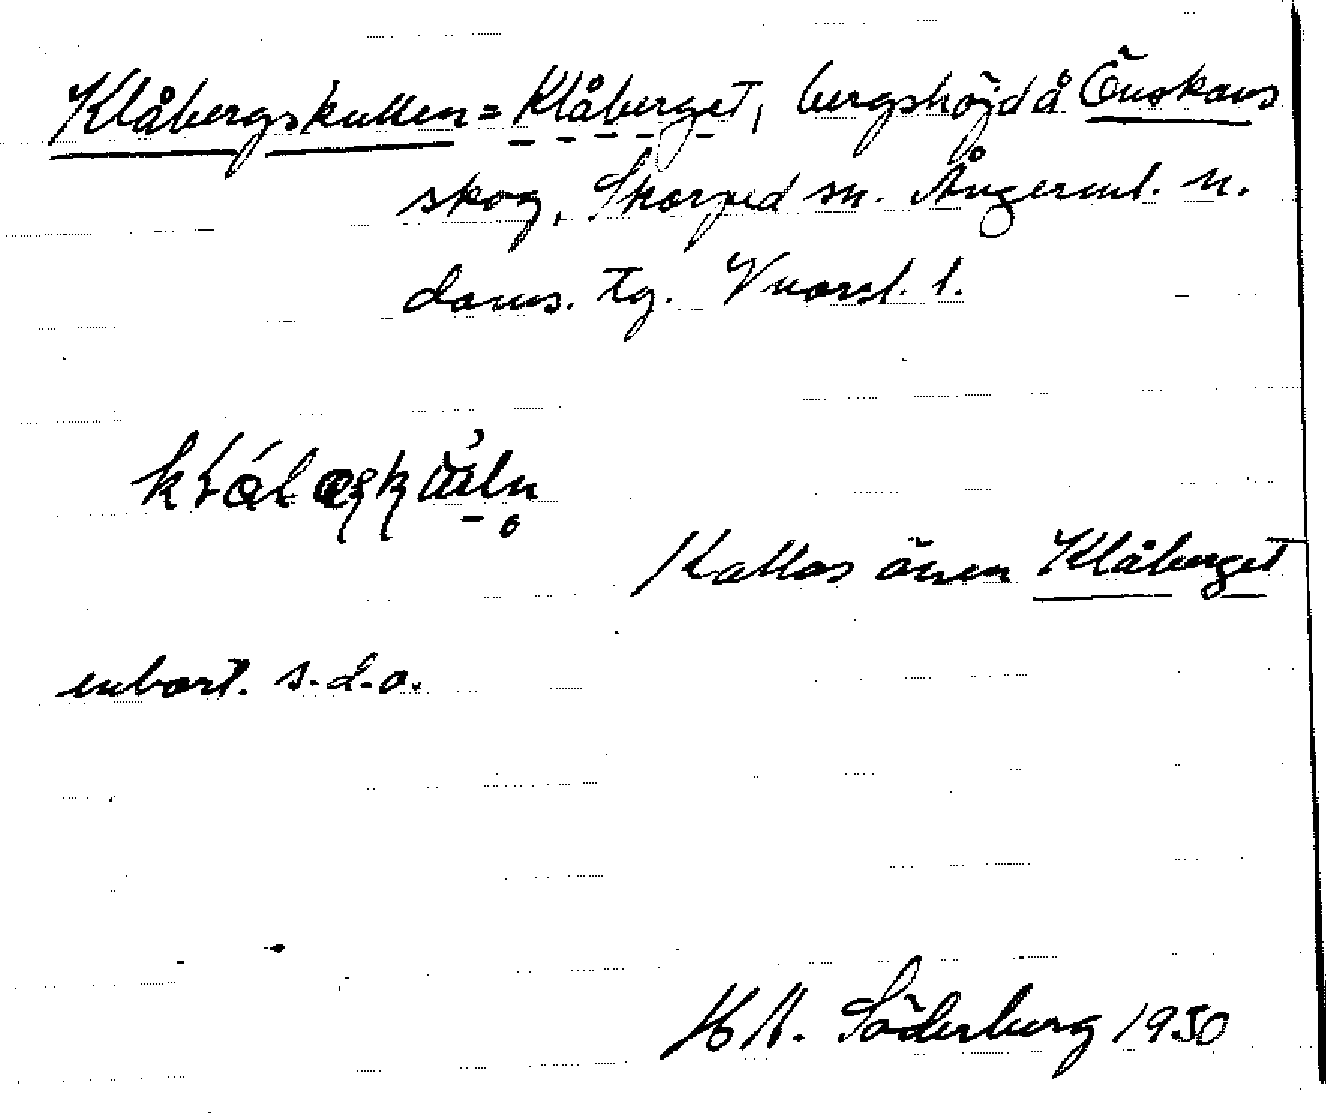 Klåbergskullen = Klåberget, bergshöjd å Önskans
skog, Skorped sn. Ångerml. n.
doms. tg. V norrl. l.
Kallas även Klåberget
enbart. s.d.o.
K A. Söderberg 1930